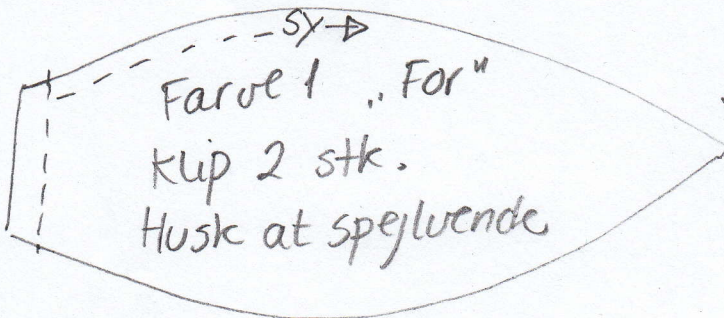 Sy
Farve 1 „For"
Klip 2 stk.
Husk at spejlvende